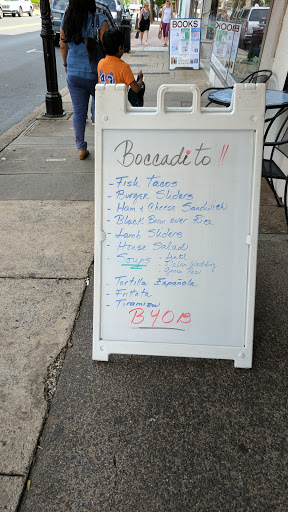 BOOKS
Boccadito !!
- Fish Tacos
- Burger Sliders
- Ham & Cheese Sandwich
- Black Bean over Rice
- Lamb Sliders
- House Salad
- Soups - Lentil
- Italian Wedding
- Green Pea
- Tortilla Española
- Frittata
- Tiramisu
BYOB